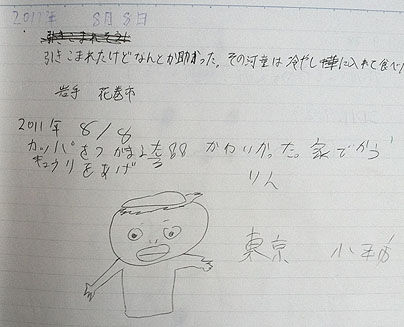 2011年 8月8日
引きこまれそう!
引きこまれたけどなんとか助かった。その河童は冷やし に入れて食べ
岩手 花巻市
2011年 8/8
カッパをつかまえた 88 かわいかった。家でかう
キュウリをあげ りん
東京 小平市